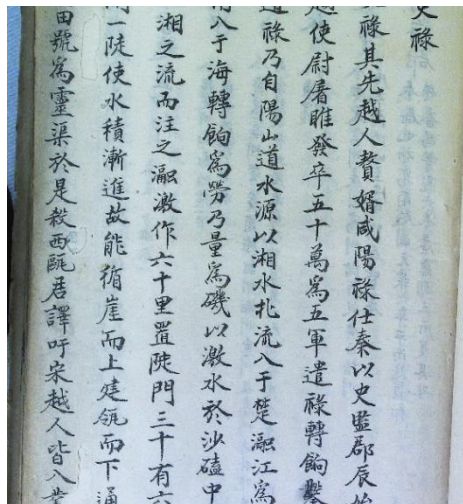 史祿
祿其先越人贅婿咸陽祿仕秦以史監郡辰
使尉屠睢發卒五十萬為五軍遣祿轉餉鑿
祿乃自陽山道水源以湘水北流入于楚瀜江為
入于海轉餉為勞乃量為磯以激水於沙磕中
湘之流而注之瀜激作六十里置陡門三十有六
一陡使水積漸進故能循崖而上建瓴而下通
田號為靈渠於是殺西甌君譯吁宋越人皆入叢